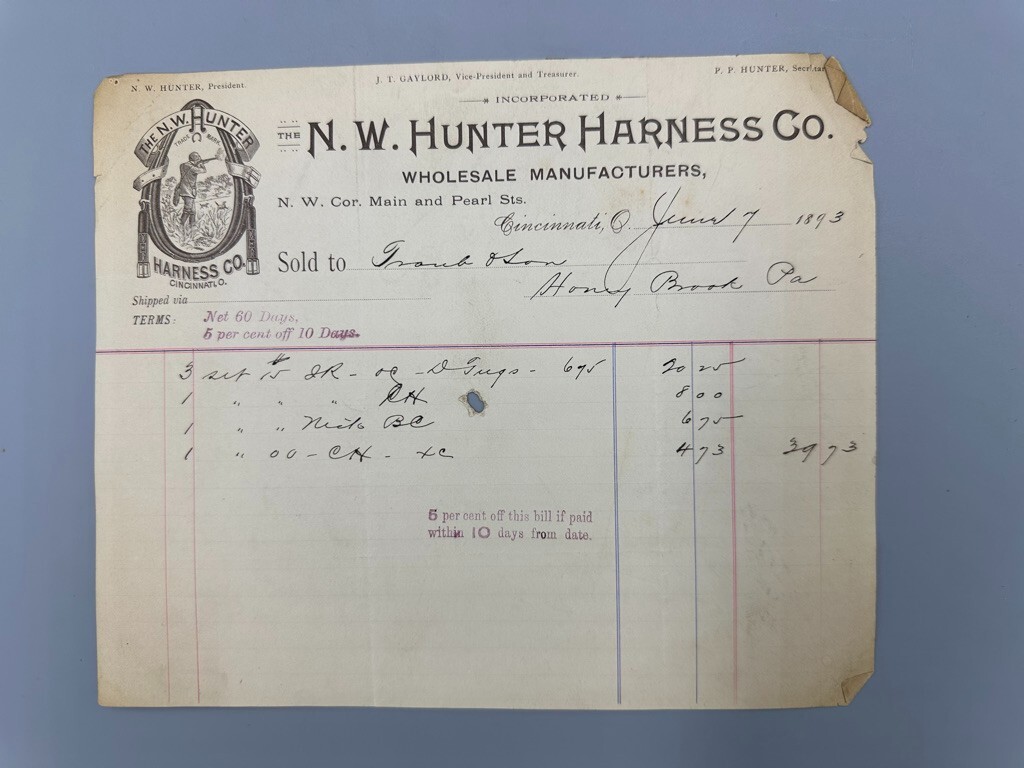 N. W. HUNTER, President.
J. T. GAYLORD, Vice-President and Treasurer.
P. P. HUNTER, Secretar
INCORPORATED
THE N. W. HUNTER HARNESS CO.
WHOLESALE MANUFACTURERS,
THE N.W. HUNTER
TRADE MARK
HARNESS CO.
CINCINNATI, O.
N. W. Cor. Main and Pearl Sts.
Cincinnati, O. June 7 1893
Sold to Traub & Son
Honey Brook Pa
Shipped via
TERMS: Net 60 Days,
5 per cent off 10 Days.
3 set #15 - OC - D Tugs - 675 20 25
1 " " " CH 8 00
1 " " Nick BC 6 75
1 " 00 - CH - XC 4 73 39 73
5 per cent off this bill if paid
within 10 days from date.